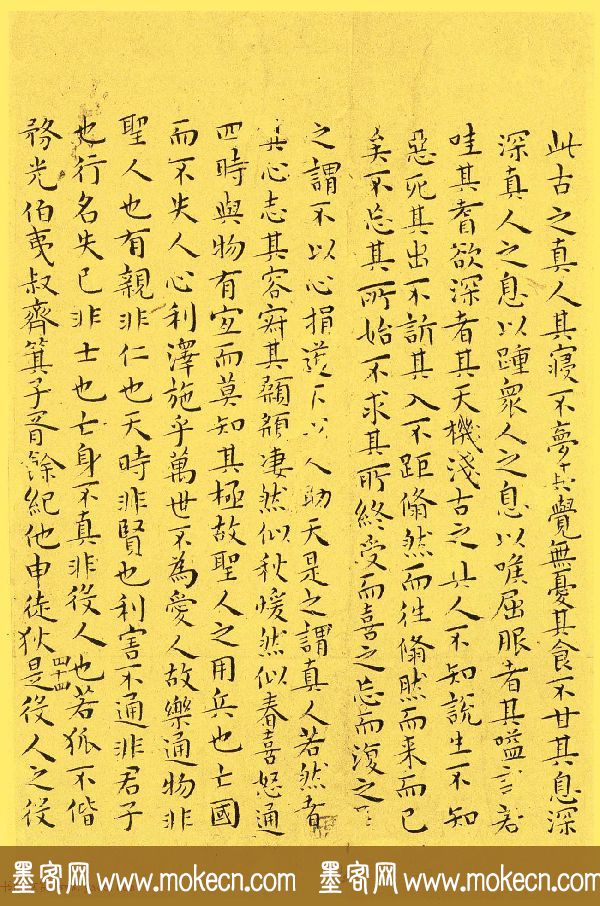 此古之真人其寢不夢其覺無憂其食不甘其息深
深真人之息以踵衆人之息以喉屈服者其嗌言若
哇其耆欲深者其天機淺古之真人不知說生不知
惡死其出不訢其入不距翛然而往翛然而来而已
矣不忘其所始不求其所終受而喜之忘而復之是
之謂不以心捐道不以人助天是之謂真人若然者
其心志其容寂其顙頯凄然似秋煖然似春喜怒通
四時與物有宜而莫知其極故聖人之用兵也亡國
而不失人心利澤施乎萬世不為愛人故樂通物非
聖人也有親非仁也天時非賢也利害不通非君子
也行名失已非士也亡身不真非役人也若狐不偕
務光伯夷叔齊箕子胥餘紀他申徒狄是役人之役
四十四
墨客网 www.mokecn.com 墨客网 www.mokecn.com